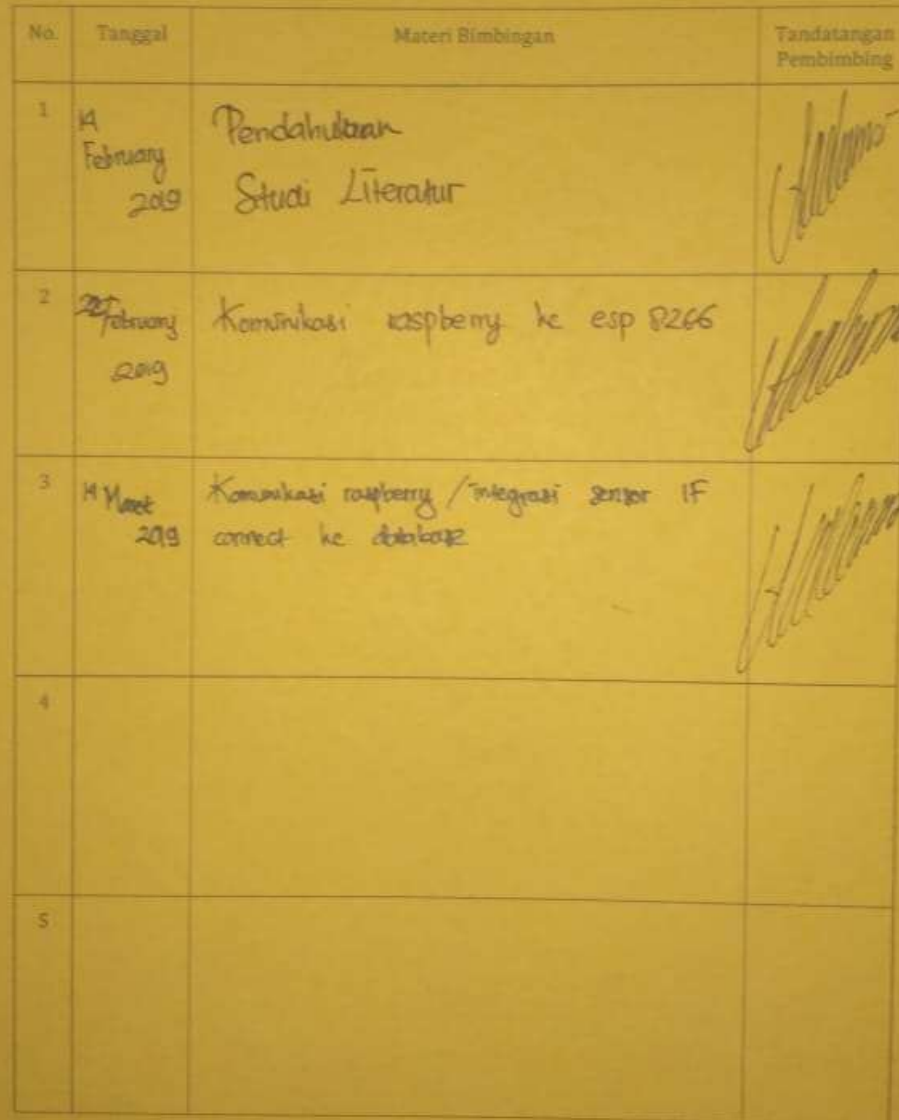 No. Tanggal Materi Bimbingan Tandatangan
Pembimbing
1 14 Pendahuluan
February Studi Literatur
2019
2 February Komunikasi raspberry ke esp 8266
2019
3 14 Maret Komunikasi raspberry / integrasi sensor IF
2019 connect ke database
4
5